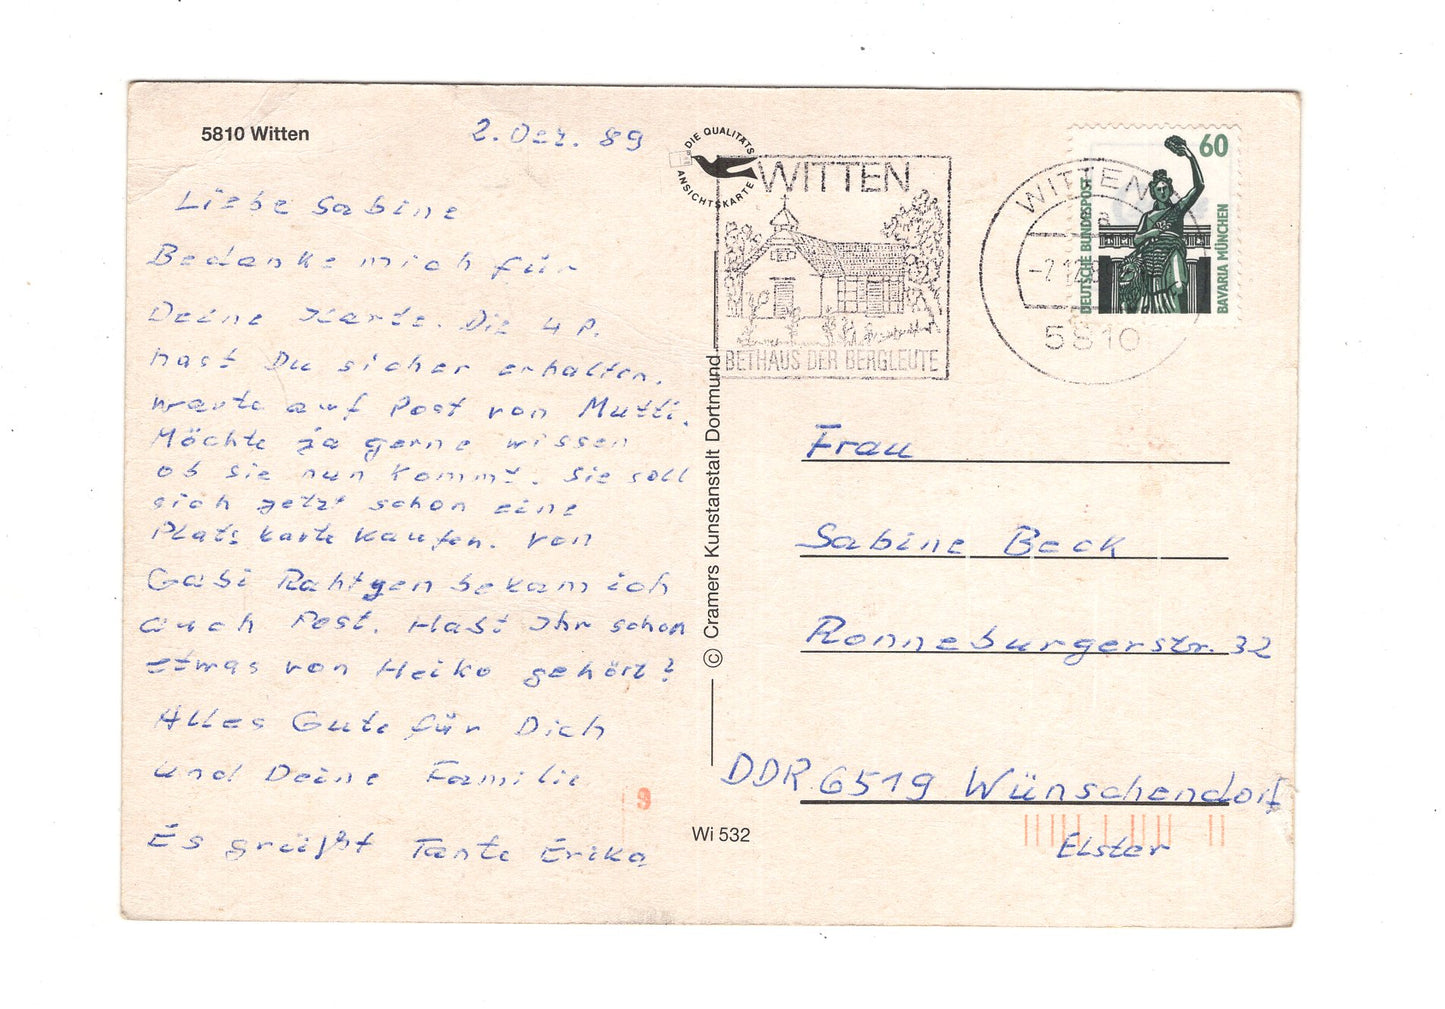 5810 Witten
2. Dez. 89
Liebe Sabine
Bedanke mich für
Deine Karte. Die 4 P.
hast Du sicher erhalten.
warte auf Post von Mutti.
Möchte ja gerne wissen
ob sie nun kommt. Sie soll
sich jetzt schon eine
Platskarte kaufen. von
Gabi Rahtgen bekam ich
auch Post. Habt Ihr schon
etwas von Heiko gehört?
Alles Gute für Dich
und Deine Familie
Es grüßt Tante Erika
9
DIE QUALITÄTS
ANSICHTSKARTE
WITTEN
BETHAUS DER BERGLEUTE
© Cramers Kunstanstalt Dortmund
Wi 532
WITTEN
a
5810
60
DEUTSCHE BUNDESPOST
BAVARIA MÜNCHEN
Frau
Sabine Beck
Ronneburgerstr. 32
DDR 6519 Wünschendorf
Elster